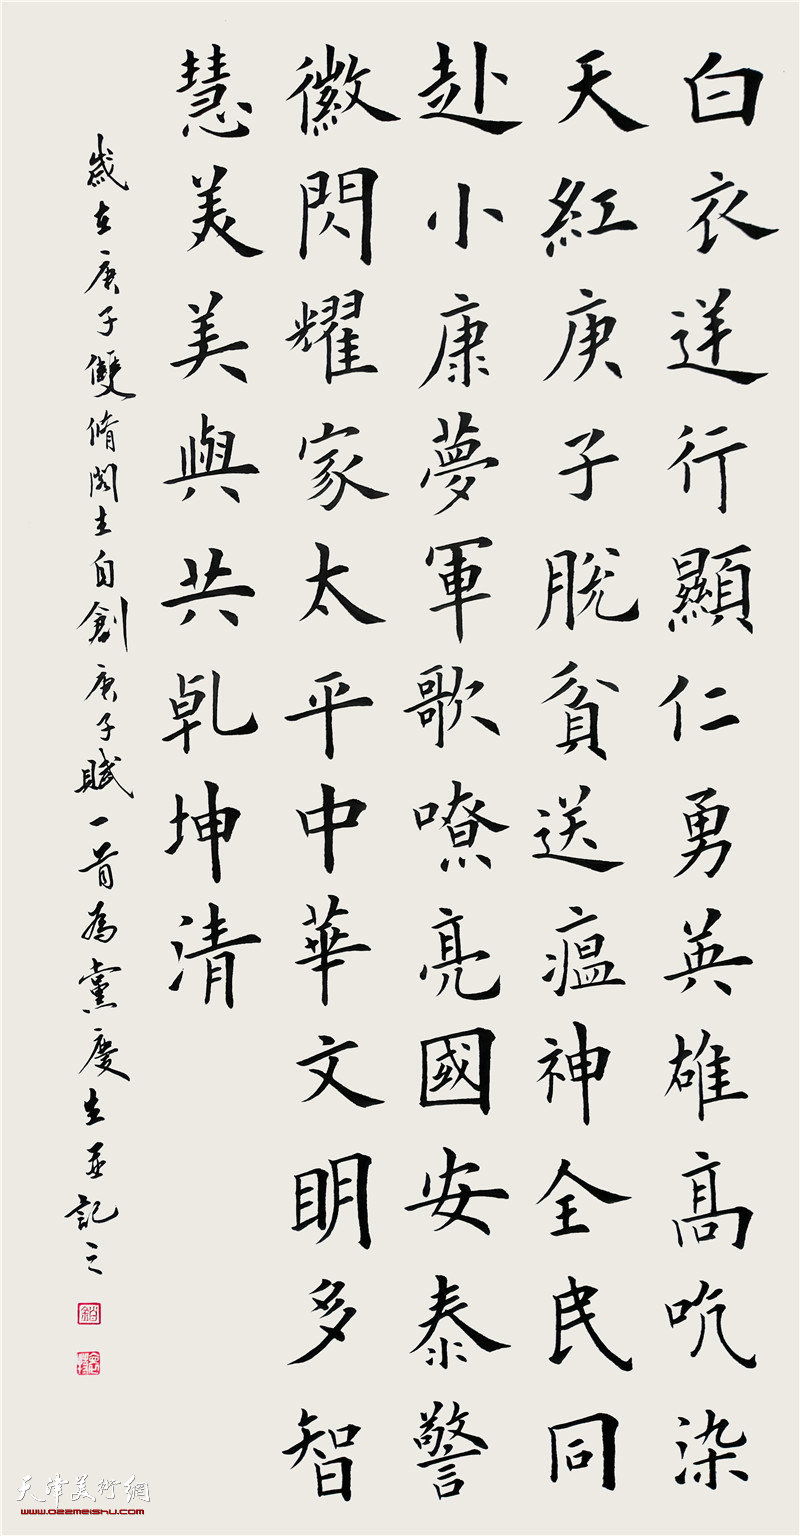 白衣逆行顯仁勇英雄髙吭染
天紅庚子脫貧送瘟神全民同
赴小康夢軍歌嘹亮國安泰警
徽閃耀家太平中華文明多智
慧美美與共乹坤清
歲在庚子雙脩閣主自創庚子賦一首為黨慶生並記之
天津美術網
www.022meishu.com